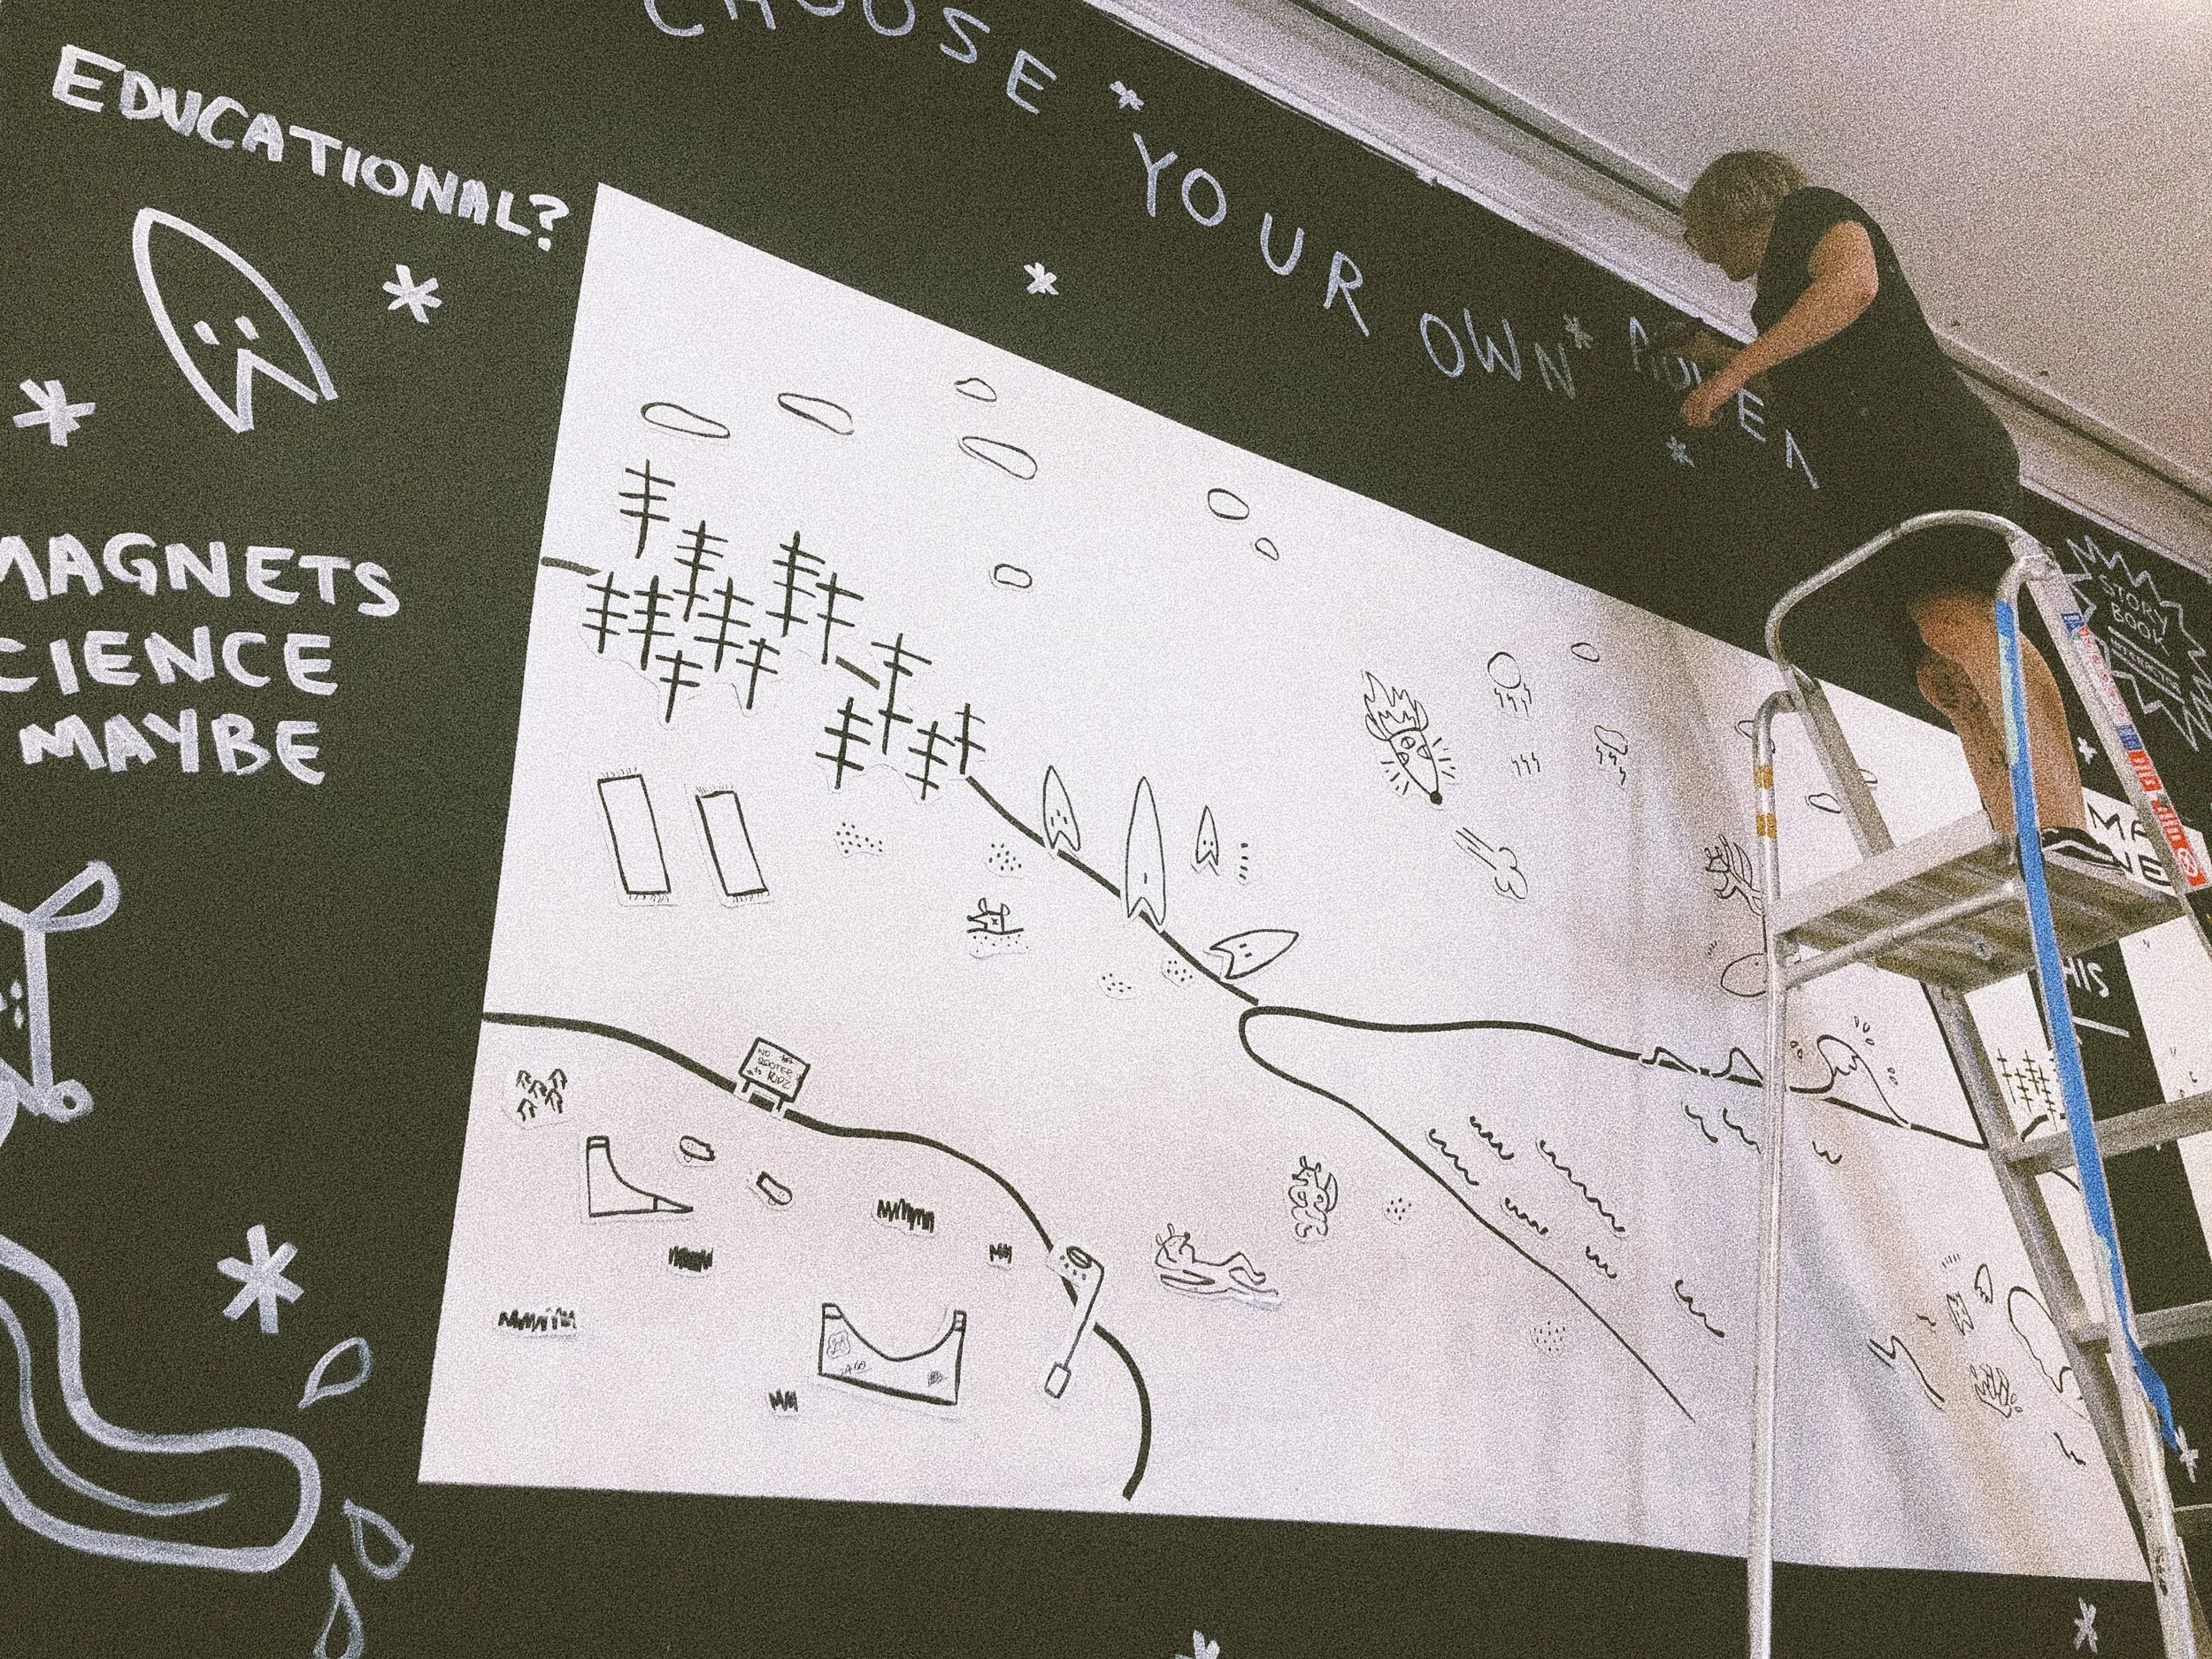 CHOOSE * YOUR OWN * ADVEN
EDUCATIONAL?
MAGNETS
CIENCE
MAYBE
STORY
BOOK
NO
SCOOTER
KIDZ
MA
HIS